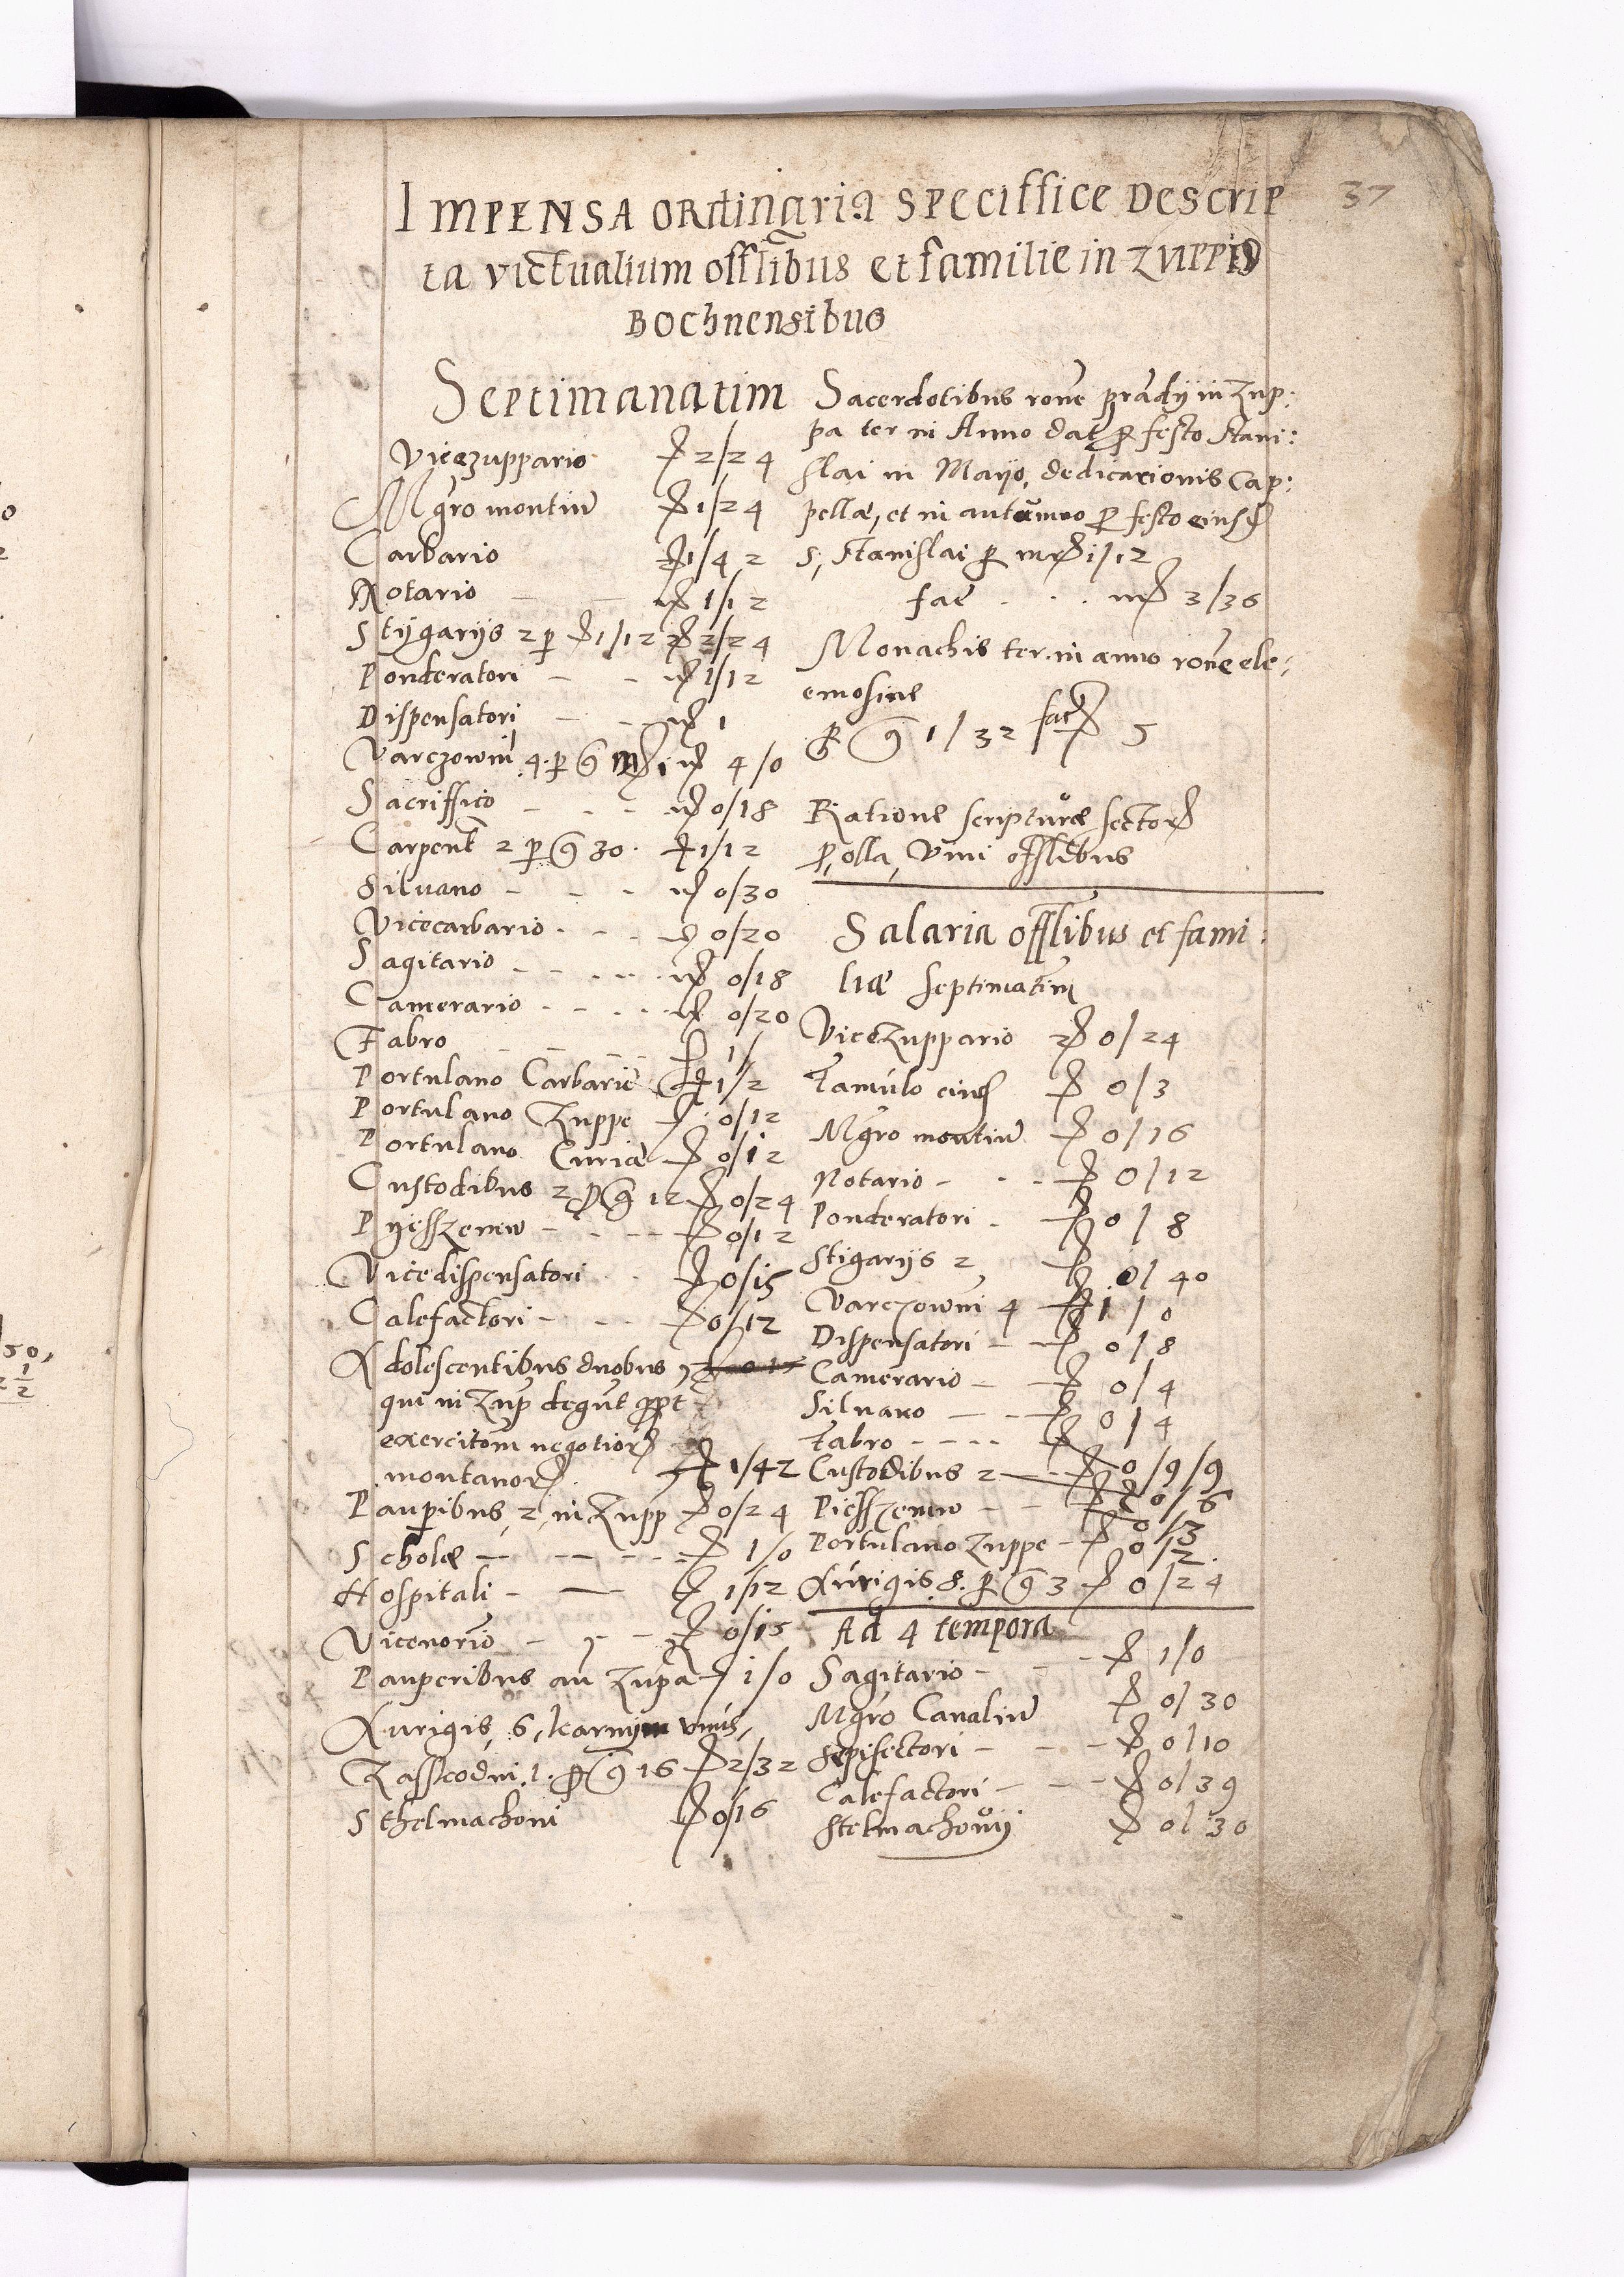 37
IMPENSA ORdinaria SPeciffice Descrip
ta victualium offlibus et familie in zuppis
Bochnensibus
Septimanatim
Vicezuppario 2/24
Mgro montiu 1/24
Carbario 1/42
Notario 1/12
Stygarys 2 p 1/12 2/24
Ponderatori 1/12
Dispensatori 1
Varczowni 4 p 4/0
Sacriffico 0/18
Carpent 2 p 30 1/12
Siluano 0/30
Vicecarbario 0/20
Sagitario 0/18
Camerario 0/20
Fabro 1/
Portulano Carbarie 1/2
Portulano Zuppe 0/12
Portulano Curiae 0/12
Custodibus 2 12 0/24
Pyesszenew 0/12
Vicedispensatori 0/15
Calefactori 0/12
Adolescentibus duobus
qui in Zup degut
exercitom negotior
montanor 1/42
Pauperibus, 2, in Zupp 0/24
Scholae 1/0
Hospitali 1/12
Vicenorio 0/15
Pauperibus an Zupa 1/0
Aurigis, 6, karnym vnus,
Zasscodni 1. 16 2/32
Sthelmachoni 0/16
Sacerdotibus rone prandy in Zup:
pa ter in Anno dat p festo Stani:
slai in Mayo, dedicacionis Cap:
pellae, et in autumno p festo eiusd
S, Stanislai p 1/12
fac 3/36
Monachis ter in anno rone ele:
emosine
1/32 fac 5
Ratione scripturae sector
p, olla, Vini offlibus
Salaria offlibus et fami:
liae septimatim
Vicezuppario 0/24
Famulo eius 0/3
Mgro montiu 0/16
Notario 0/12
Ponderatori 0/8
Stigarys 2 0/40
Varczowni 4 1/0
Dispensatori 0/8
Camerario 0/4
Siluano 0/4
Fabro
Custodibus 2 0/9/9
Piesszenew 0/6
Portulano Zuppe 0/2
Aurigis 8. p 3 0/24
Ad 4 tempora
Sagitario 1/0
Mgro Canaliu 0/30
Sepisectori 0/10
Calefactori 0/39
Stelmachowy 0/30